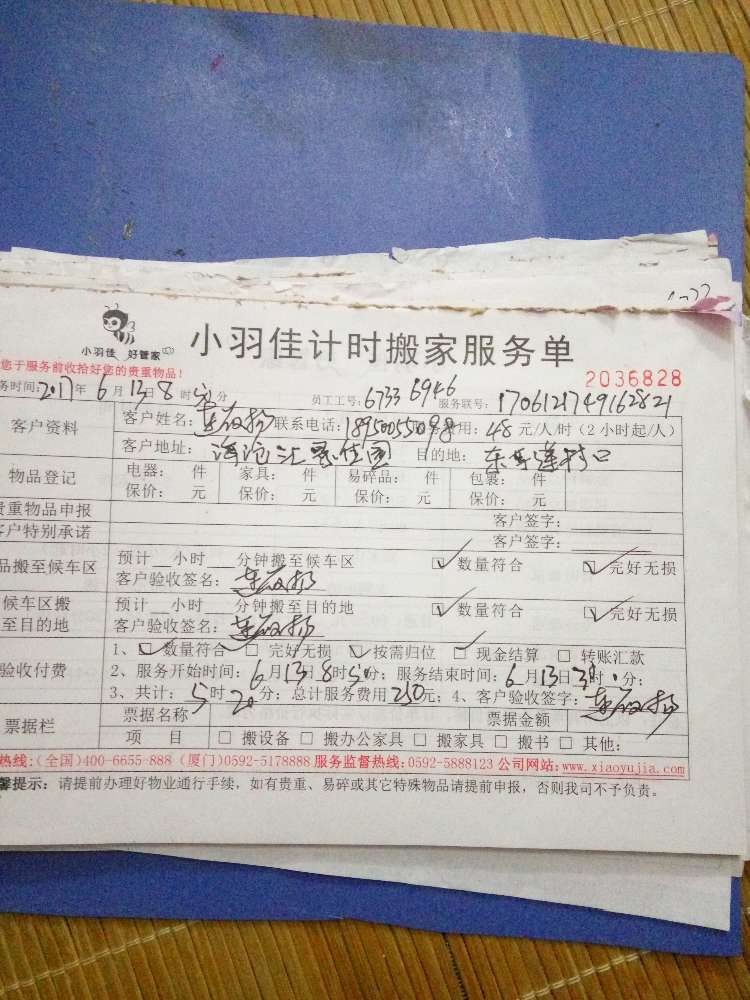 小羽佳 好管家
小羽佳计时搬家服务单
您于服务前收拾好您的贵重物品!
2036828
务时间:2017年6月13日8时50分 员工工号:6733 6946 服务联号:1706121749162821
客户资料
客户姓名: 联系电话:18950055098 费用:48元/人/时(2小时起/人)
客户地址:海沧汇景佳园 目的地:东 莲村口
物品登记
电器: 件 家具: 件 易碎品: 件 包裹: 件
保价: 元 保价: 元 保价: 元 保价: 元
贵重物品申报 客户签字:
客户特别承诺 客户签字:
品搬至候车区
预计 小时 分钟搬至候车区 ☑数量符合 ☑完好无损
客户验收签名:
候车区搬至目的地
预计 小时 分钟搬至目的地 ☑数量符合 ☑完好无损
客户验收签名:
验收付费
1、☑数量符合 □完好无损 ☑按需归位 ☑现金结算 □转账汇款
2、服务开始时间:6月13日8时50分;服务结束时间:6月13日 时 分;
3、共计:5时20分;总计服务费用250元;4、客户验收签字:
票据栏
票据名称 票据金额
项 目 □搬设备 □搬办公家具 □搬家具 □搬书 □其他:
热线:(全国)400-6655-888 (厦门)0592-5178888 服务监督热线:0592-5888123 公司网站:www.xiaoyujia.com
馨提示:请提前办理好物业通行手续,如有贵重、易碎或其它特殊物品请提前申报,否则我司不予负责。